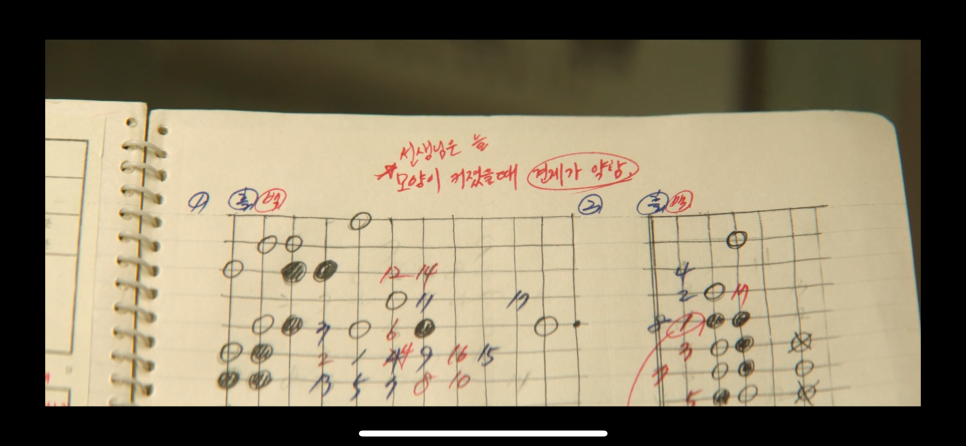 선생님은 늘
모양이 커졌을때 견제가 약함.
1) 흑 백
2) 흑 백
12 14 4
11 17 2
6 8 1
2 1 4 9 16 15 3
13 5 3 8 10 7
5